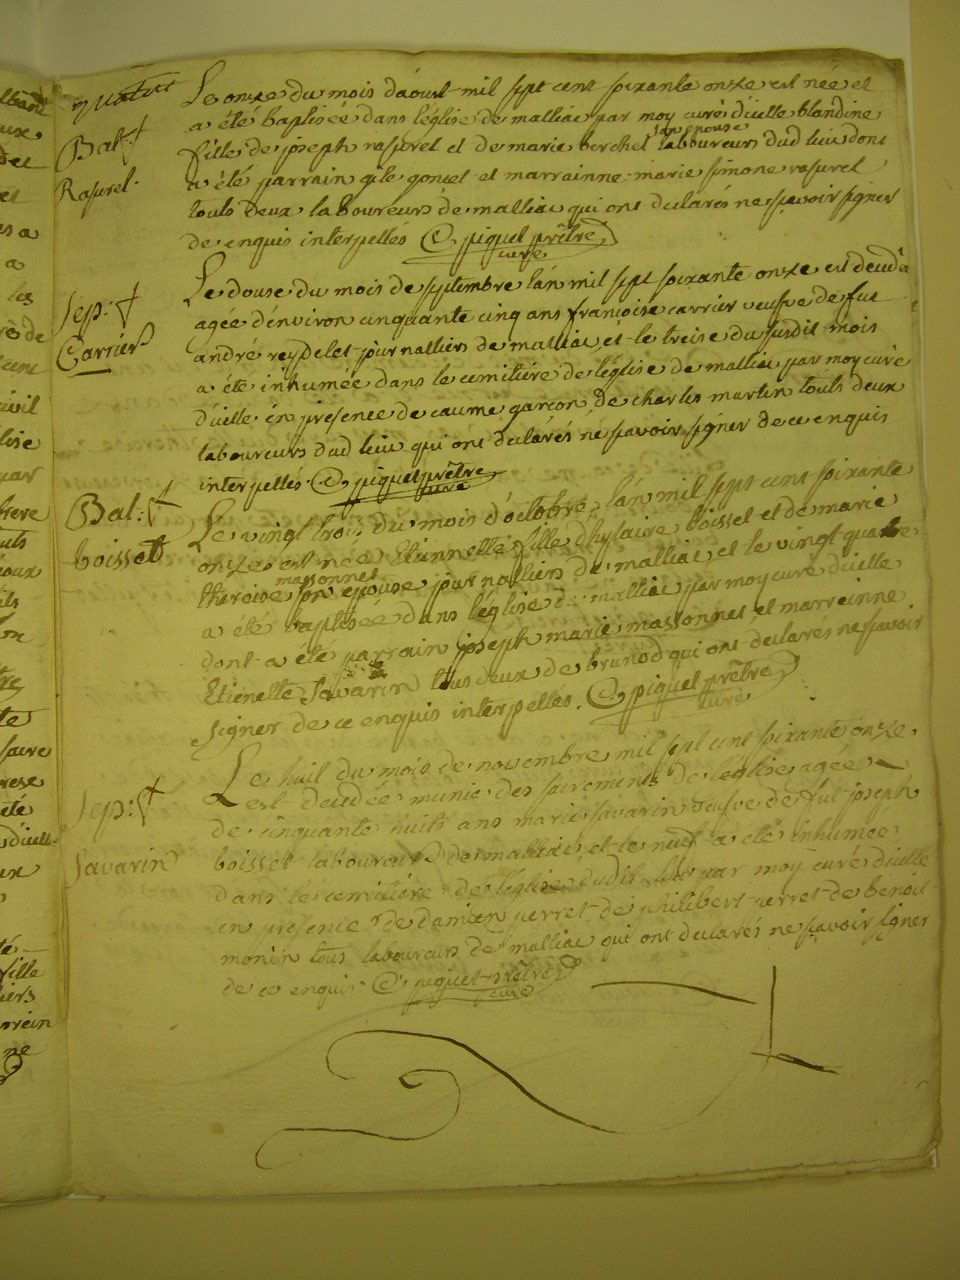 Bat:
Rasurel
Le onze du mois d'aoust mil sept cent soixante onze est née et
a été baptisée dans l'église de malliac par moy curé d'icelle blandine
fille de joseph rasurel et de marie berchet son epouse laboureurs dud lieu dont
a été parrain gonset et marrainne marie simone rasurel
touts deux laboureurs de malliac qui ont declarés ne sçavoir signer
de enquis interpellés piquet prêtre
curé
Sep:
Carrier
Le douse du mois de septembre l'an mil sept soixante onze est decedée
agée d'environ cinquante cinq ans françoise carrier veufve de fut
andré reydelet journalliers de malliac, et le treise du susdit mois
a été inhumée dans le cemitiére de l'église de malliac par moy curé
d'icelle en presence de caume garçon, de charles martin touts deux
laboureurs dud lieu qui ont declarés ne sçavoir signer de ce enquis
interpellés. piquet prêtre
curé
Bat:
boisset
Le vingt trois du mois d'octobre, l'an mil sept cent soixante
onze est née Etiennette fille d'hylaire boisset et de marie
thereise massonnet son epouse journalliers de malliac, et le vingt quatre
a été baptisée dans l'église de malliac par moy curé d'icelle
dont a été parrain joseph marie massonnet, et marreinne
Etienette Savarin tous deux de brunod qui ont declarés ne sçavoir
signer de ce enquis interpelles. piquet prêtre
curé
Sep:
Savarin
Le huit du mois de novembre mil sept cent soixante onze
est decedée munie des sacrements de l'église agée
de cinquante huits ans marie savarin veufve de fut joseph
boisset laboureurs de malliac et le neuf a été inhumée
dans le cemitiére de l'église dudit lieu par moy curé d'icelle
en presence de damien perret de philibert perret de benoit
monin tous laboureurs de malliac qui ont declarés ne sçavoir signer
de ce enquis. piquet prêtre
curé